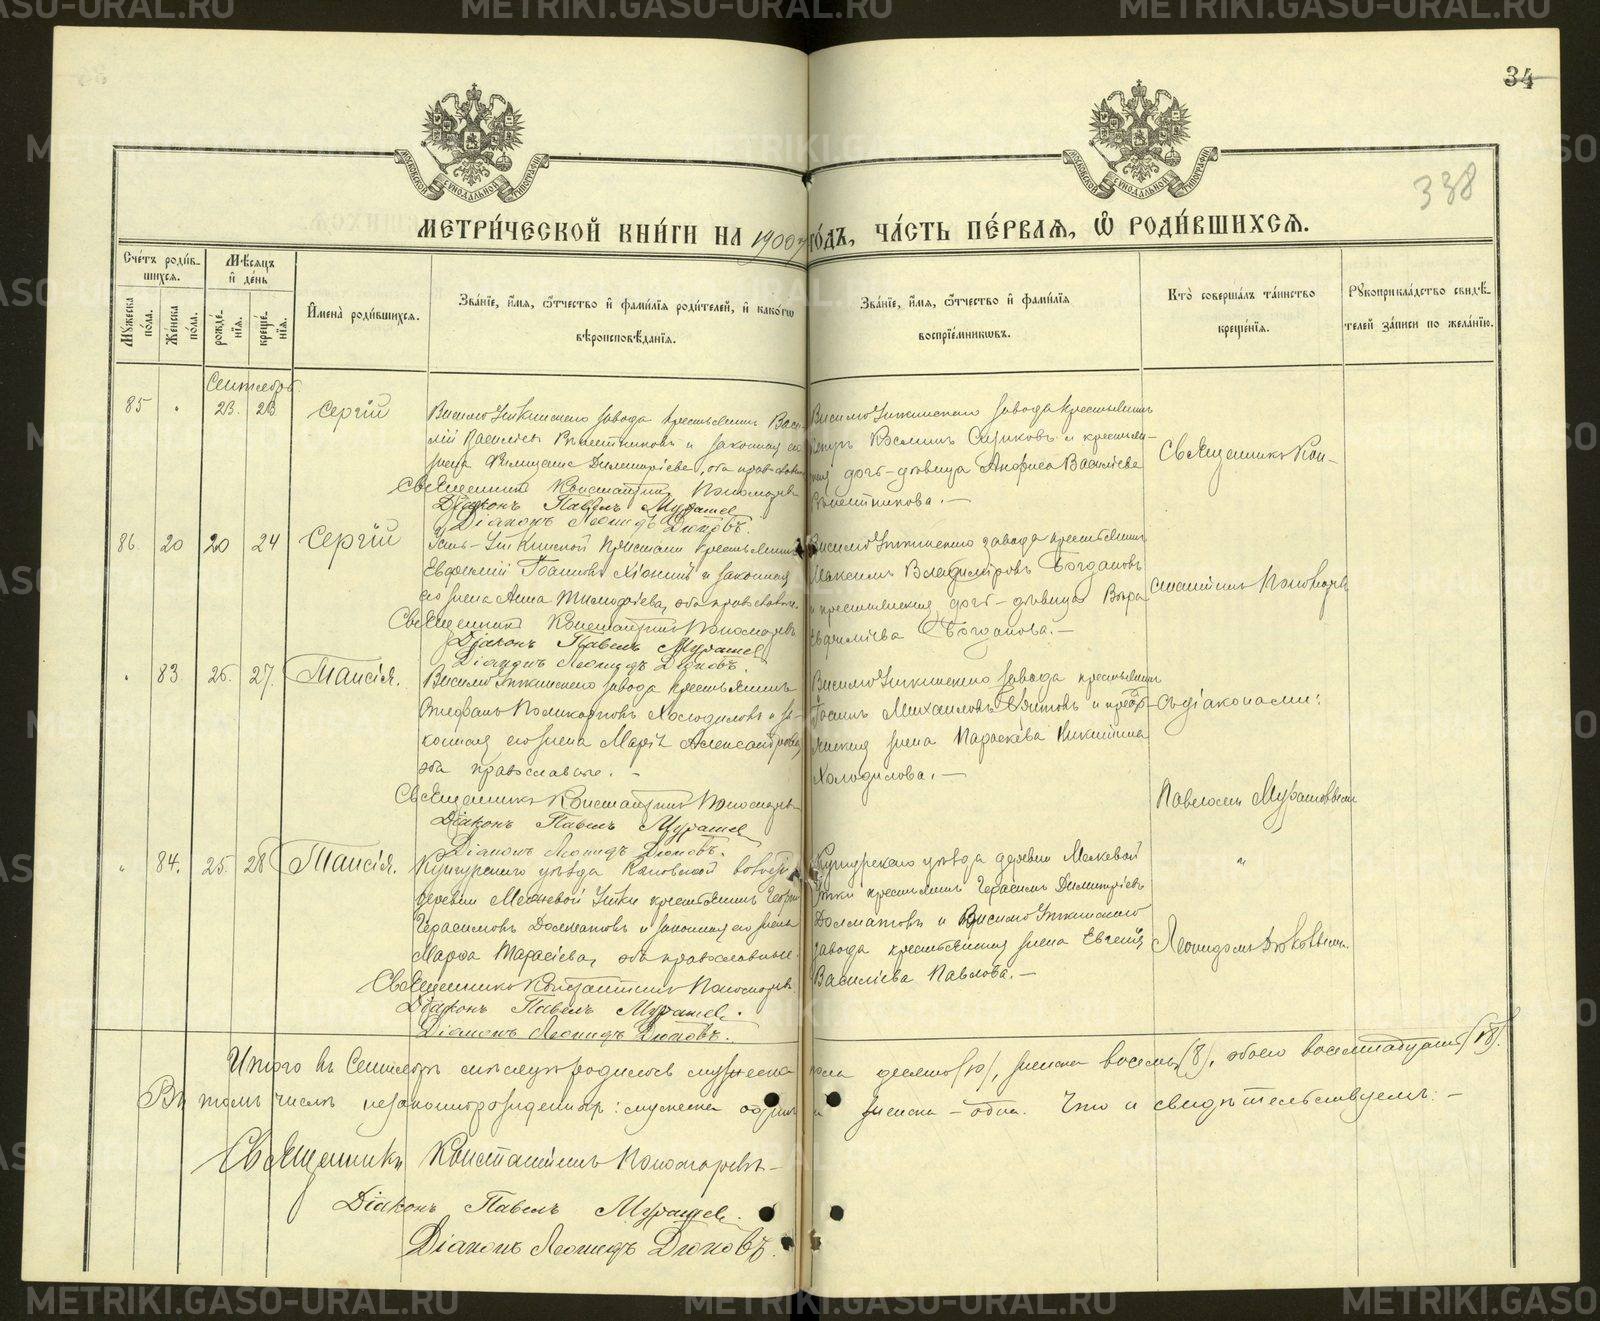 METRIKI.GASO-URAL.RU
34
338
МОСКОВСКОЙ СѴНОДАЛЬНОЙ ТИПОГРАФІИ
МОСКОВСКОЙ СѴНОДАЛЬНОЙ ТИПОГРАФІИ
МЕТРИ́ЧЕСКОЙ КНИ́ГИ НА 1900й ГО́ДЪ, ЧА́СТЬ ПЕ́РВАѦ, Ѡ҆ РОДИ́ВШИХСѦ.
Сче́тъ роди́вшихсѧ.
Мѣ́сѧцъ и҆ де́нь
Мꙋ́жеска по́ла.
Же́нска по́ла.
рожде́нїѧ.
креще́нїѧ.
И҆мена̀ роди́вшихсѧ.
Зва́нїе, и҆́мѧ, ѻ҆́тчество и҆ фами́лїѧ роди́телей, и҆ како́гѡ
вѣроисповѣ́данїѧ.
Зва́нїе, и҆́мѧ, ѻ҆́тчество и҆ фами́лїѧ
воспрїе́мникѡвъ.
Кто̀ соверша́лъ та́инство
креще́нїѧ.
Рꙋкоприкла́дство свидѣ́-
телей за́писи по жела́нїю.
Сентябрь
85 " 23. 23 Сергій
Висимо Уткинскаго завода крестьянинъ Васи-
лій Василіевъ и законная его
жена Димитріева, оба православные
Священникъ Константинъ Пономаревъ
Діаконъ Павелъ Мурашев
Діаконъ Леонидъ Дюковъ.
Висимо Уткинскаго завода крестьянинъ
и крестьян-
ская дочь-дѣвица Анфиса Василіева
Священникъ Кон-
86. 20 20 24 Сергій
Усть-Уткинской Пристани крестьянинъ
Евфимій Іоанновъ и законная
его жена Анна Тимофіева, оба православные.
Священникъ Константинъ Пономаревъ
Діаконъ Павелъ Мурашев
Діаконъ Леонидъ Дюковъ.
Висимо Уткинскаго завода крестьянинъ
Максимъ Владиміровъ Богдановъ
и крестьянская дочь-дѣвица Вѣра
Евфиміева Богданова.—
стантинъ Пономаревъ
" 83. 26. 27. Таисія.
Висимо Уткинскаго завода крестьянинъ
Стефанъ Поликарповъ Холодиловъ и за-
конная его жена Марія Александрова,
оба православные. -
Священникъ Константинъ Пономаревъ
Діаконъ Павелъ Мурашев
Діаконъ Леонидъ Дюковъ.
Висимо Уткинскаго завода крестьянинъ
Іоаннъ Михаиловъ и крест-
янская жена Параскева Никитина
Холодилова.—
съ діаконами:
Павломъ Мурашовымъ
" 84. 25. 28 Таисія.
Кунгурскаго уѣзда волости
деревни Межевой Утки крестьянинъ Георгій
Герасимовъ Долматовъ и законная его жена
Марфа Тарасіева, оба православные.
Священникъ Константинъ Пономаревъ.
Діаконъ Павелъ Мурашев.
Діаконъ Леонидъ Дюковъ.
Кунгурскаго уѣзда деревни Межевой
Утки крестьянинъ Герасимъ Димитріевъ
Долматовъ и Висимо Уткинскаго
завода крестьянская жена Евгенія
Василіева Павлова.—
"
Леонидомъ Дюковымъ.
Итого въ Сентябрѣ мѣсяцѣ родилось мужеска пола десять (10), женска восемь (8), обоего восемнадцать (18).
Въ томъ числѣ незаконнорожденныхъ: мужеска одинъ и женска - одна. Что и свидѣтельствуемъ: -
Священникъ Константинъ Пономаревъ-
Діаконъ Павелъ Мурашев.
Діаконъ Леонидъ Дюковъ.